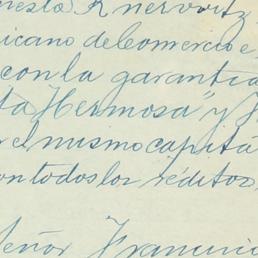 nesto Knervoitz
icano de Comercio e
con la garantia
ta Hermosa" y
el mismo capita
on todos los réditos,
eñor Francisc